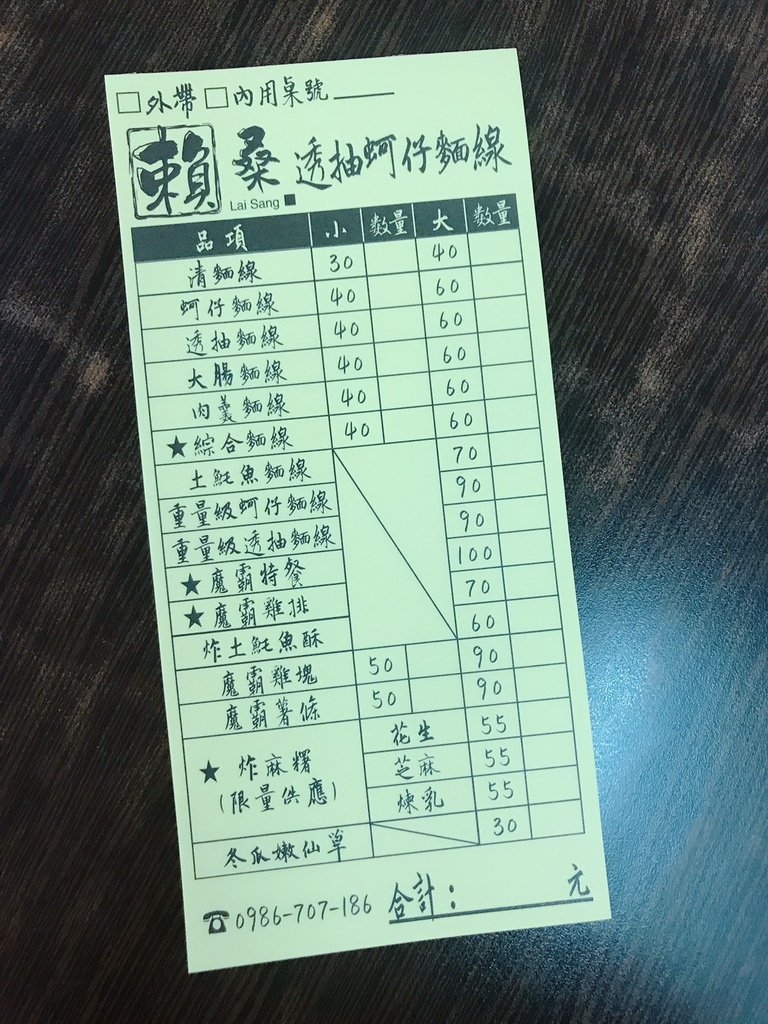 □外帶 □內用桌號
賴桑 透抽蚵仔麵線
Lai Sang
品項 小 数量 大 数量
清麵線 30 40
蚵仔麵線 40 60
透抽麵線 40 60
大腸麵線 40 60
肉羹麵線 40 60
★綜合麵線 40 60
土魠魚麵線 70
重量級蚵仔麵線 90
重量級透抽麵線 90
★魔霸特餐 100
★魔霸雞排 70
炸土魠魚酥 60
魔霸雞塊 50 90
魔霸薯條 50 90
★炸麻糬 花生 55
(限量供應) 芝麻 55
煉乳 55
冬瓜嫩仙草 30
☎0986-707-186 合計： 元